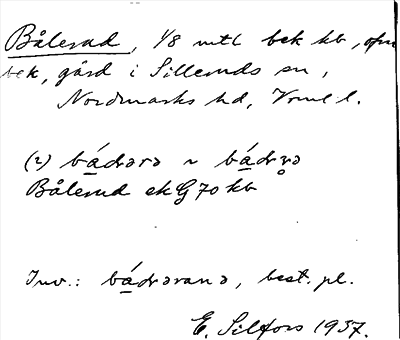 Bålerud, 1/8 mtl bek kb, ofm
bek, gård i Silleruds sn,
Nordmarks hd, Vrml l.
(2) bádrərə ~ bádr̥ə
Bålerud ekG70 kb
Inv.: bádrərana, best. pl.
E. Silfors 1937.